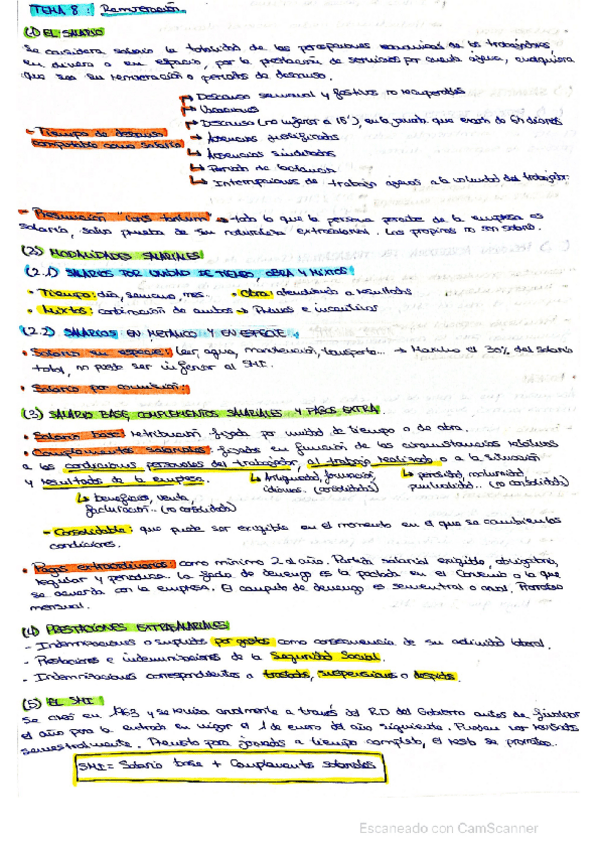 TEMA 8: Remuneración
(1) EL SALARIO
Se considera salario la totalidad de las percepciones económicas de los trabajadores
en dinero o en especie, por la prestación de servicios por cuenta ajena, cualquiera
que sea su remuneración o periodos de descanso.
↳ Descanso semanal y festivos no recuperables
↳ Vacaciones
↳ Descanso (no inferior a 15'), en la jornada que exceda de 6h diarias
- Tiempo de descanso
computable como salario
↳ Ausencias justificadas
↳ Ausencias sindicales
↳ Periodo de lactancia
↳ Interrupciones de trabajo ajenas a la voluntad del trabajador.
- Presunción "iuris tantum" → todo lo que la persona percibe de la empresa es
salario, salvo prueba de su naturaleza extrasalarial. Las propinas no son salario.
(2) MODALIDADES SALARIALES
(2.1) SALARIOS POR UNIDAD DE TIEMPO, OBRA Y MIXTOS
• Tiempo: día, semana, mes. • Obra: atendiendo a resultados
• Mixtos: combinación de ambos → Primas e incentivos
(2.2) SALARIOS EN METÁLICO Y EN ESPECIE
• Salario en especie: luz, agua, manutención, transporte... → Máximo el 30% del salario
total, no puede ser inferior al SMI.
• Salario por comisión:
(3) SALARIO BASE, COMPLEMENTOS SALARIALES Y PAGAS EXTRA
• Salario base: retribución fijada por unidad de tiempo o de obra.
• Complementos salariales: fijados en función de las circunstancias relativas
a las condiciones personales del trabajador, al trabajo realizado o a la situación
y resultados de la empresa.
↳ Antigüedad, formación, idiomas.. (consolidados)
↳ peligrosidad, nocturnidad, puntualidad... (no consolidado)
↳ beneficios, venta,
facturación.. (no consolidado)
- Consolidable: que puede ser exigible en el momento en el que se cambien las
condiciones.
• Pagas extraordinarias: como mínimo 2 al año. Partida salarial exigible, obligatoria,
regular y periódica. La fecha de devengo es la pactada en el Convenio o la que
se acuerda con la empresa. El computo de devengo es semestral o anual. Prorrateo
mensual.
(4) PRESTACIONES EXTRASALARIALES
- Indemnizaciones o suplidos por gastos como consecuencia de su actividad laboral.
- Prestaciones e indemnizaciones de la Seguridad Social.
- Indemnizaciones correspondientes a traslados, suspensiones o despidos.
(5) EL SMI
Se creó en 1963 y se revisa anualmente a través del RD del Gobierno antes de finalizar
el año para la entrada en vigor el 1 de enero del año siguiente. Pueden ser revisados
semestralmente. Previsto para jornadas a tiempo completo, el resto se prorratea.
SMI = Salario base + Complementos salariales
Escaneado con CamScanner